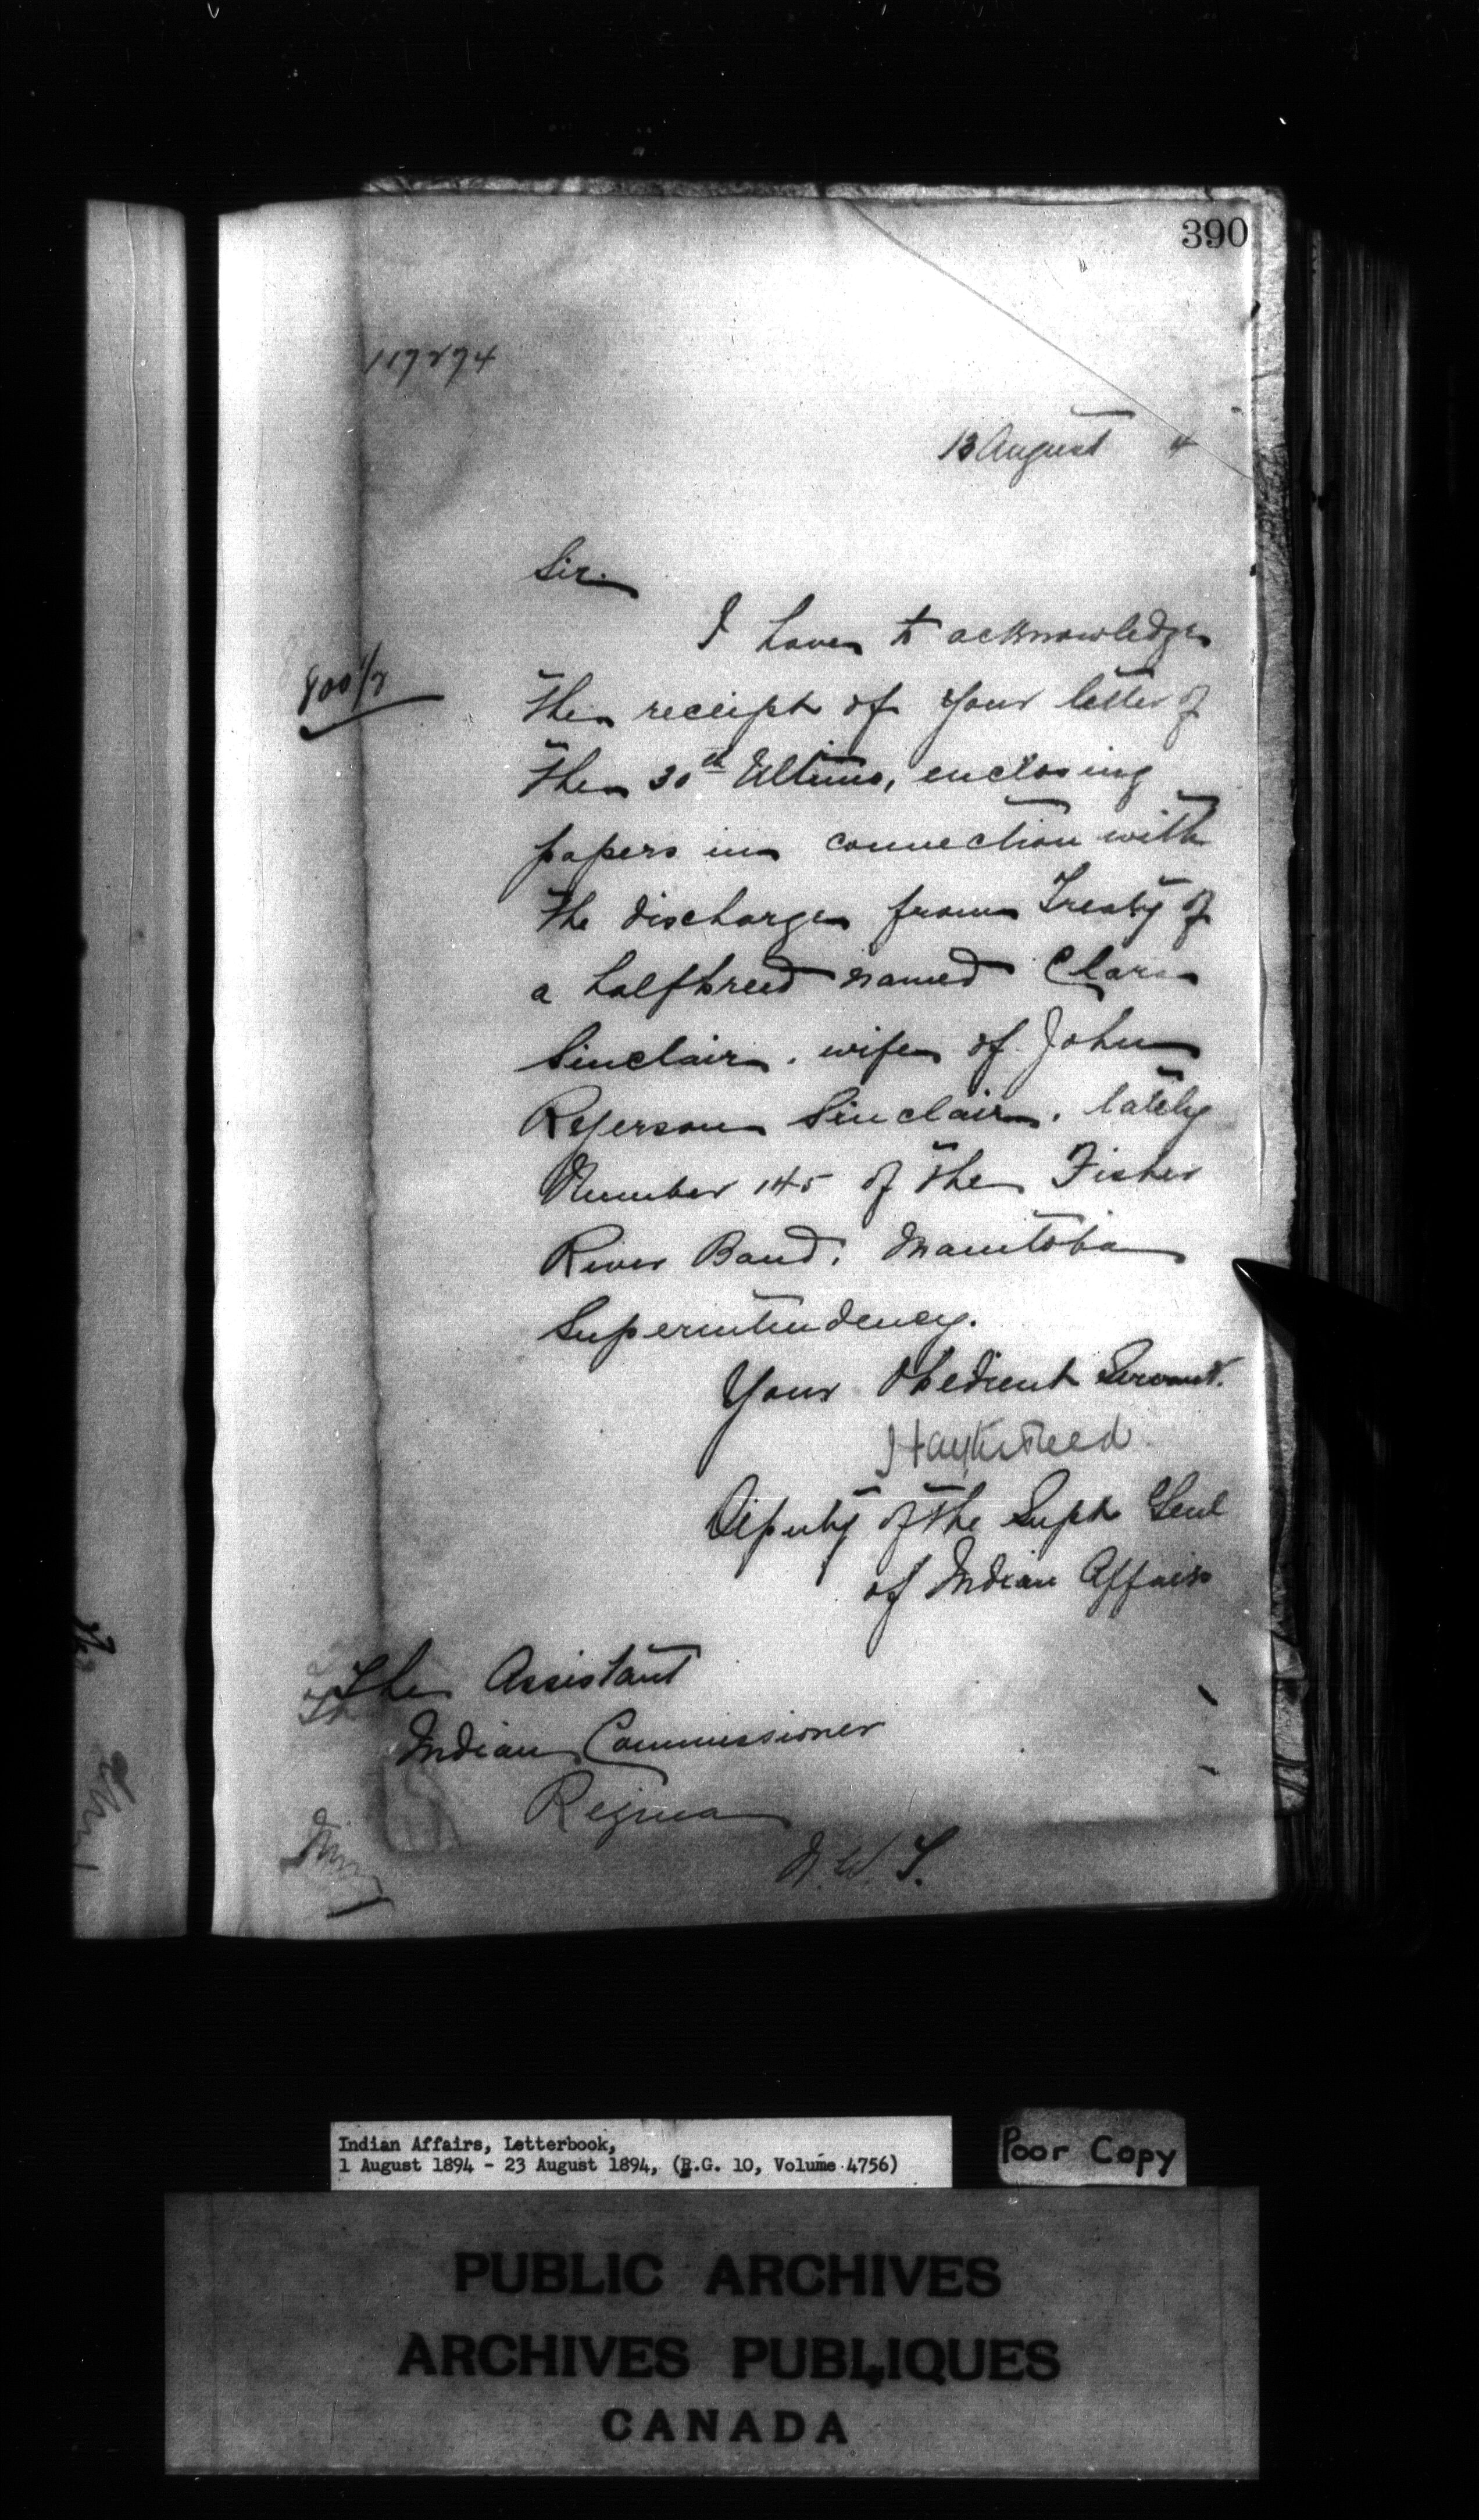 390
117274
13 August 4
Sir.
I have to acknowledge
800 1/2
the receipt of your letter of
the 30th Ultimo, enclosing
papers in connection with
the discharge from Treaty of
a halfbreed named Clara
Sinclair. wife of John
Ryerson Sinclair. lately
Number 145 of the Fisher
River Band. Manitoba
Superintendency.
Your Obedient Servant.
Hayter Reed
Deputy of the Supt Genl
of Indian Affairs
The Assistant
Indian Commissioner
Regina
N.W.T.
Indian Affairs, Letterbook,
1 August 1894 - 23 August 1894, (R.G. 10, Volume 4756)
Poor Copy
PUBLIC ARCHIVES
ARCHIVES PUBLIQUES
CANADA